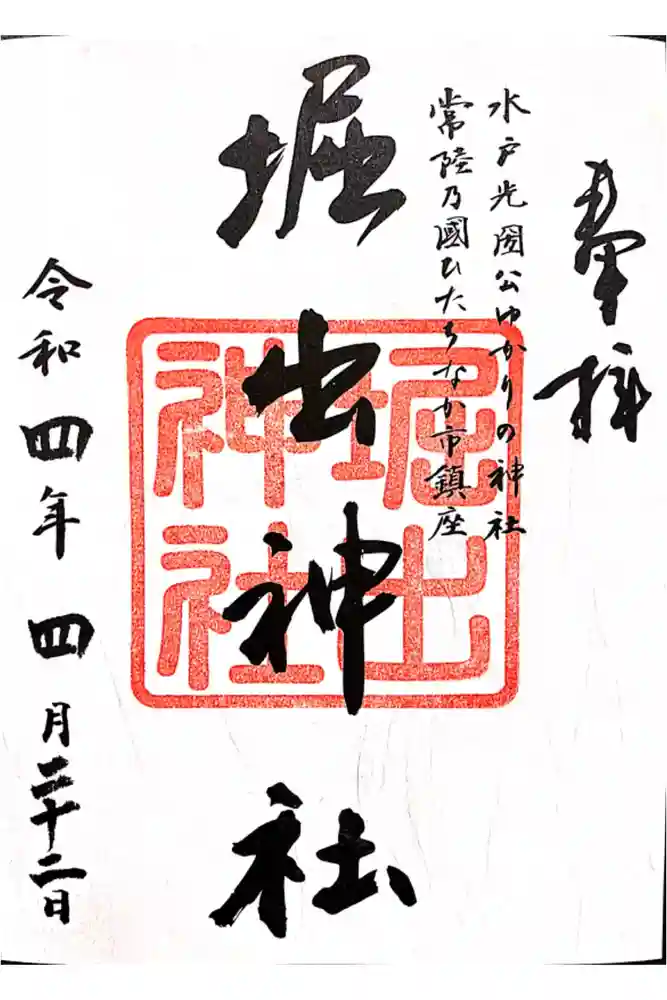 奉拝
水戸光圀公ゆかりの神社
常陸乃國ひたちなか市鎮座
堀出神社
堀出神社
令和四年四月二十二日